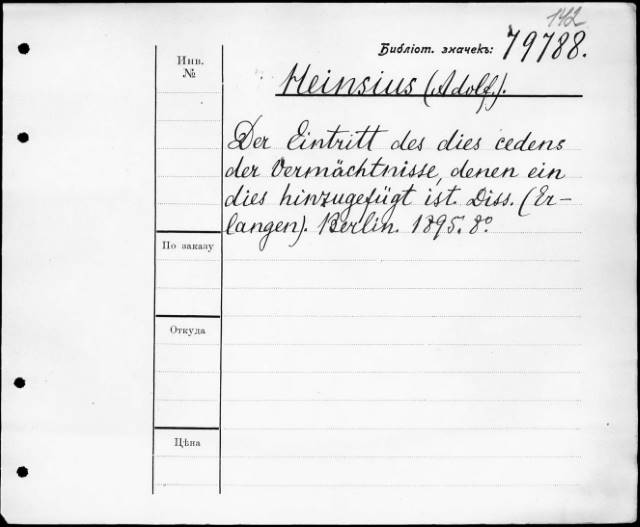 142
Библіот. значекъ: 79788.
Инв.
№
Heinsius (Adolf.).
Der Eintritt des dies cedens
der Vermächtnisse, denen ein
dies hinzugefügt ist. Diss. (Er-
langen). Berlin. 1895. 8°.
По заказу
Откуда
Цѣна